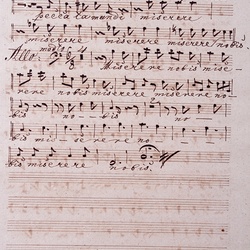 pecca ta mundi miserere
miserere miserere miserere nobis
Allo: molto
Miserere nobis mise
rere nobis miserere miserere no
bis no bis no
bis mi se re re no
bis miserere nobis.